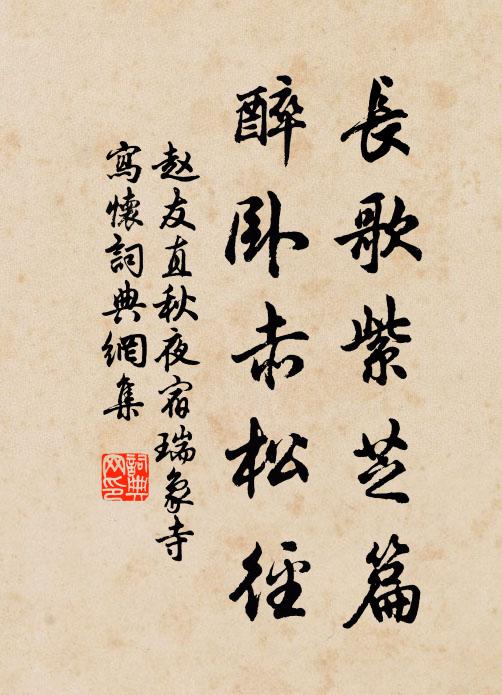 長歌紫芝篇
醉臥赤松徑
赵友直秋夜宿瑞象寺
寫懷詞典網集
詞典
网印